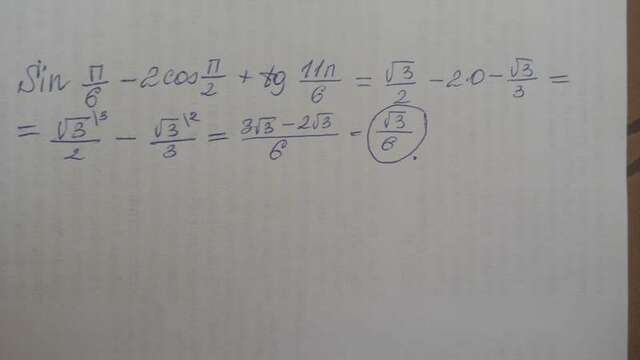 Sin π/6 - 2cos π/2 + tg 11π/6 = √3/2 - 2·0 - √3/3 =
= √3\3/2 - √3\2/3 = 3√3 - 2√3/6 = √3/6.